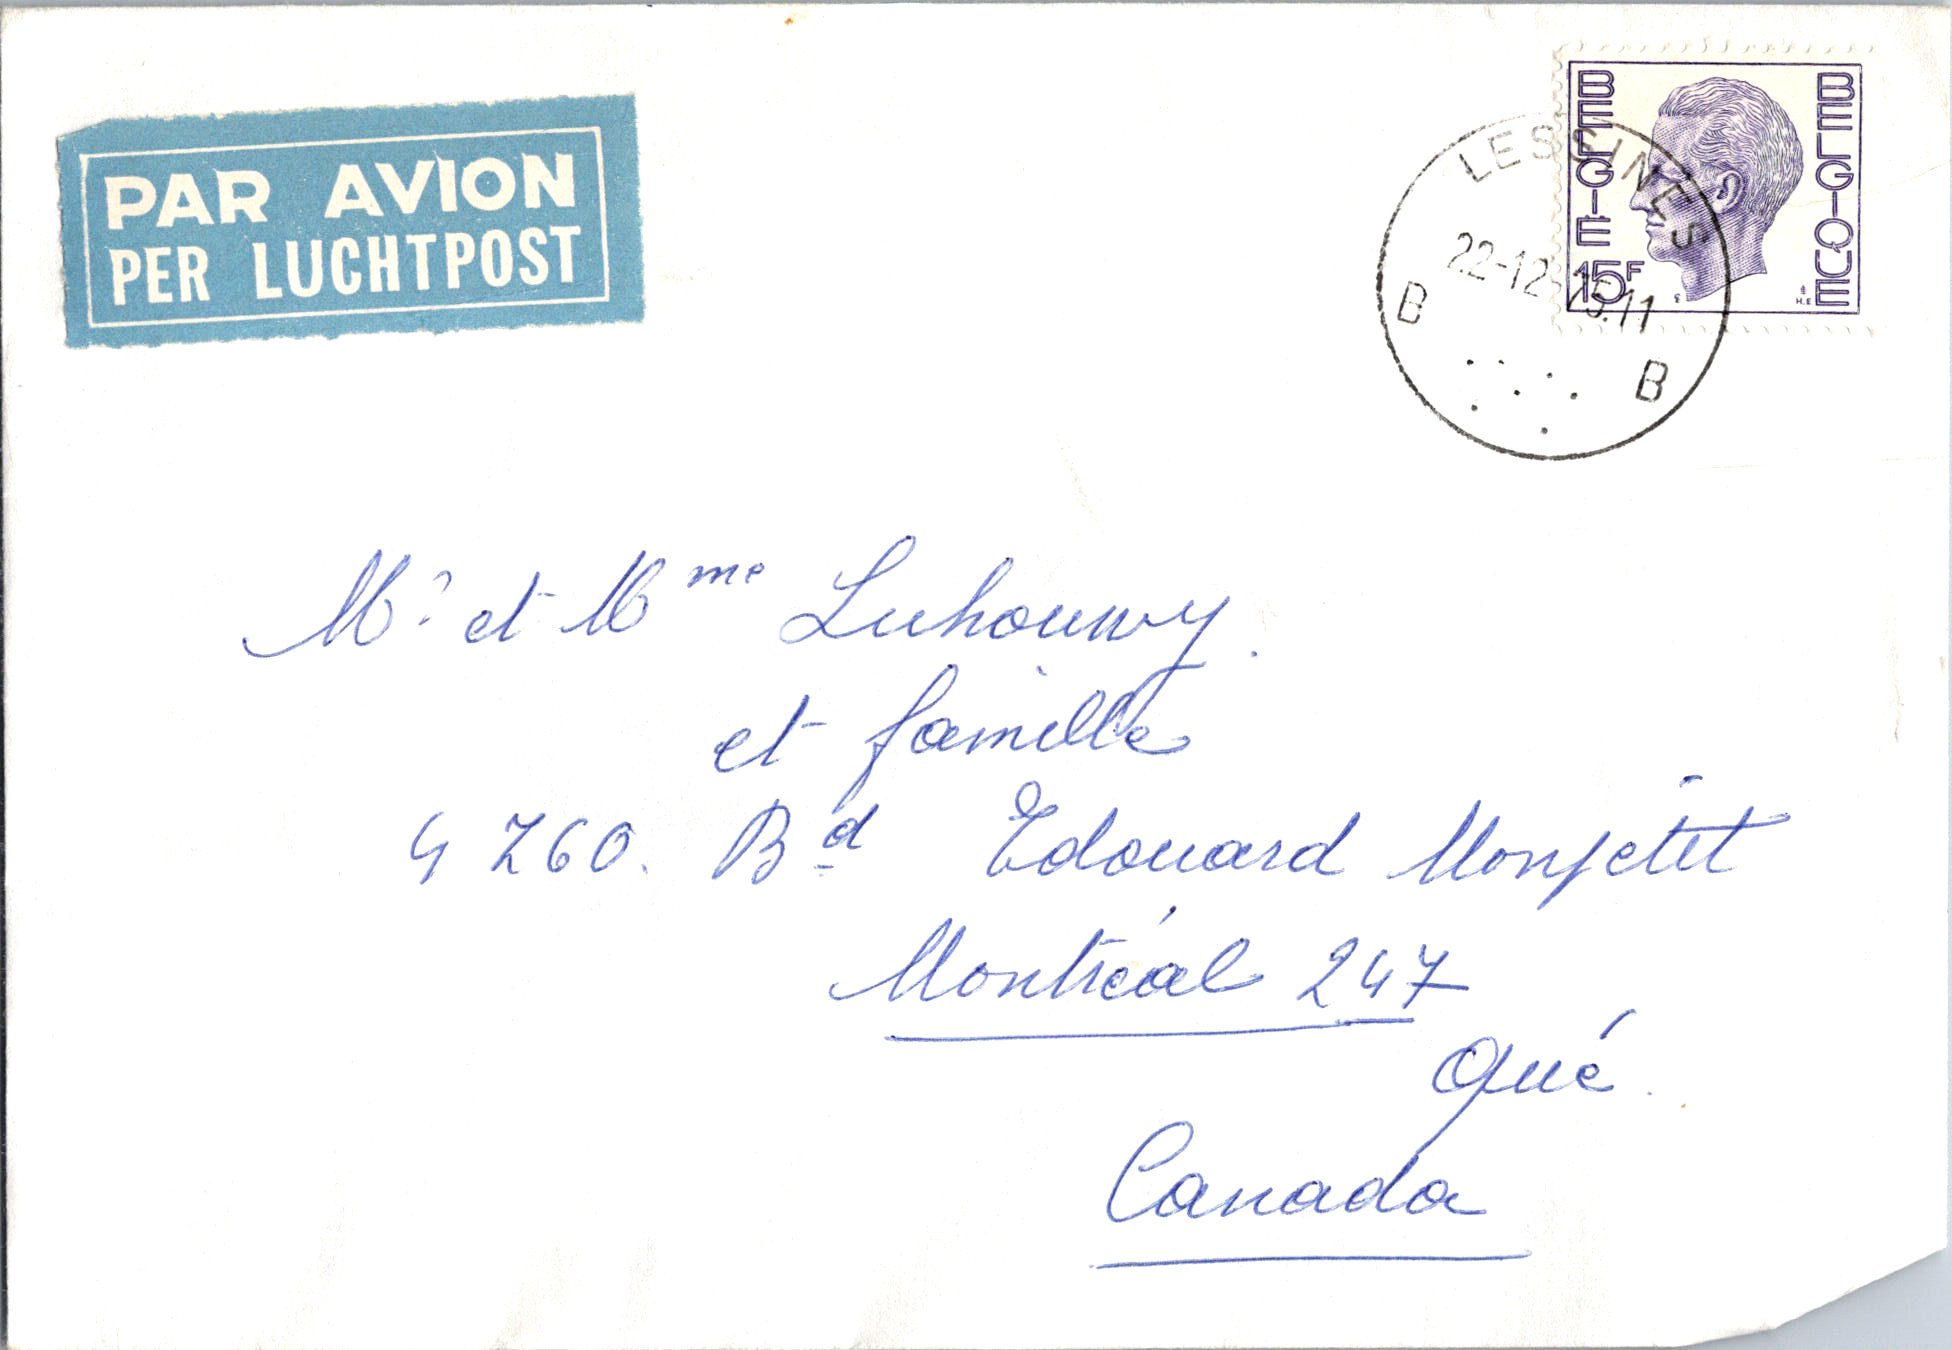 PAR AVION
PER LUCHTPOST
BELGIE
BELGIQUE
15F
H.E
LESSINES
22-12
75.11
B B
Mr et Mme
et famille
4760. Bd Edouard Monpetit
Montréal 247
Qué.
Canada